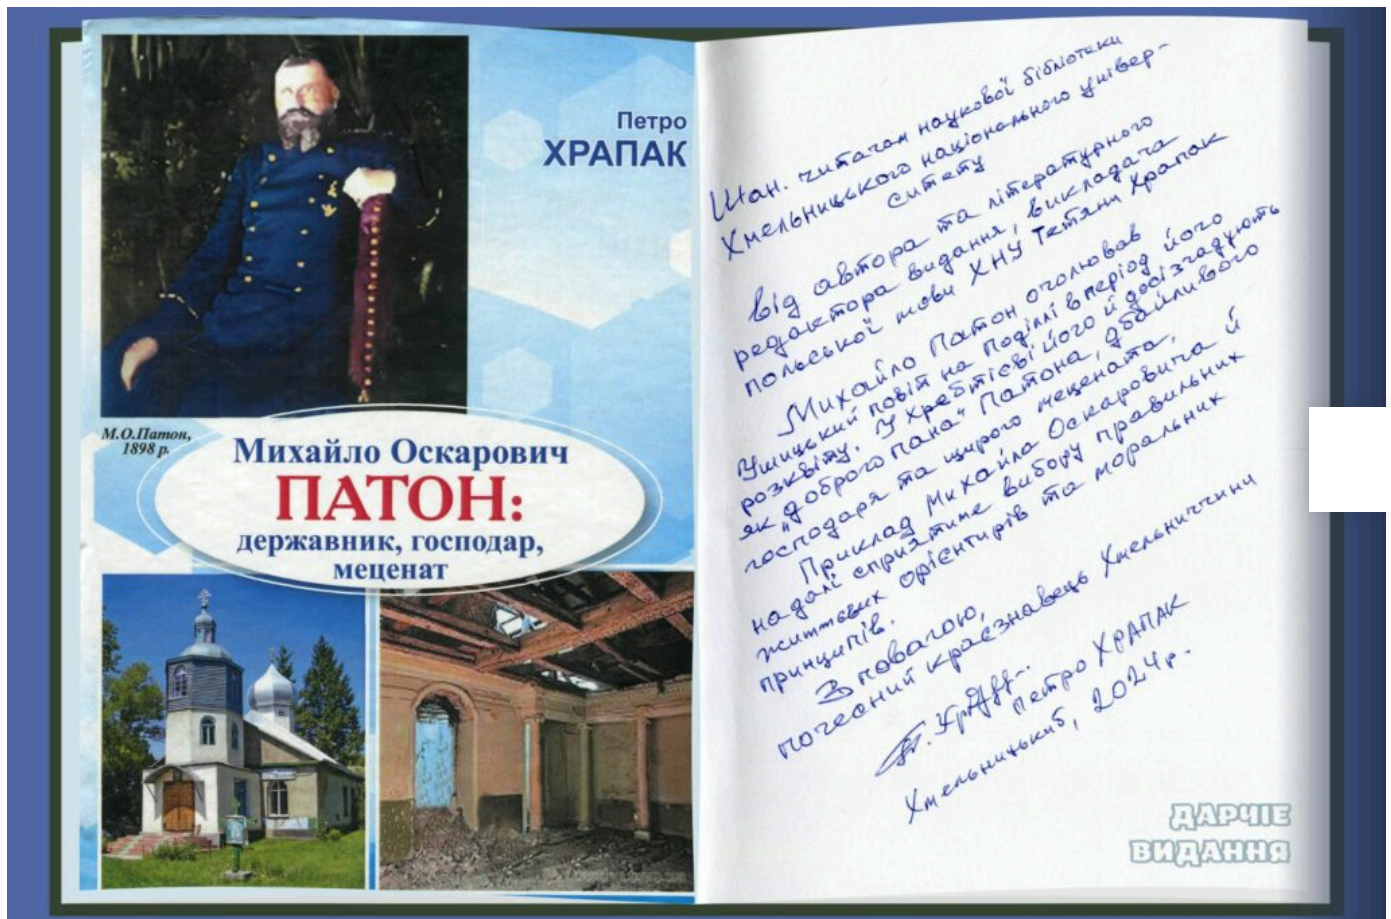 Петро
ХРАПАК
М.О.Патон,
1898 р.
Михайло Оскарович
ПАТОН:
державник, господар,
меценат
Шан. читачам наукової бібліотеки
Хмельницького національного універ-
ситету
Від автора та літературного
редактора видання, викладача
польської мови ХНУ Тетяни Храпак
Михайло Патон очолював
Ушицький повіт на Поділлі в період його
розквіту. У Хребтієві його й досі згадують
як „доброго пана" Патона, дбайливого
господаря та щирого мецената.
Приклад Михайла Оскаровича й
надалі сприятиме вибору правильних
життєвих орієнтирів та моральних
принципів.
З повагою,
почесний краєзнавець Хмельниччини
Петро ХРАПАК
Хмельницький, 2024 р.
ДАРЧІЕ
ВИДАННЯ